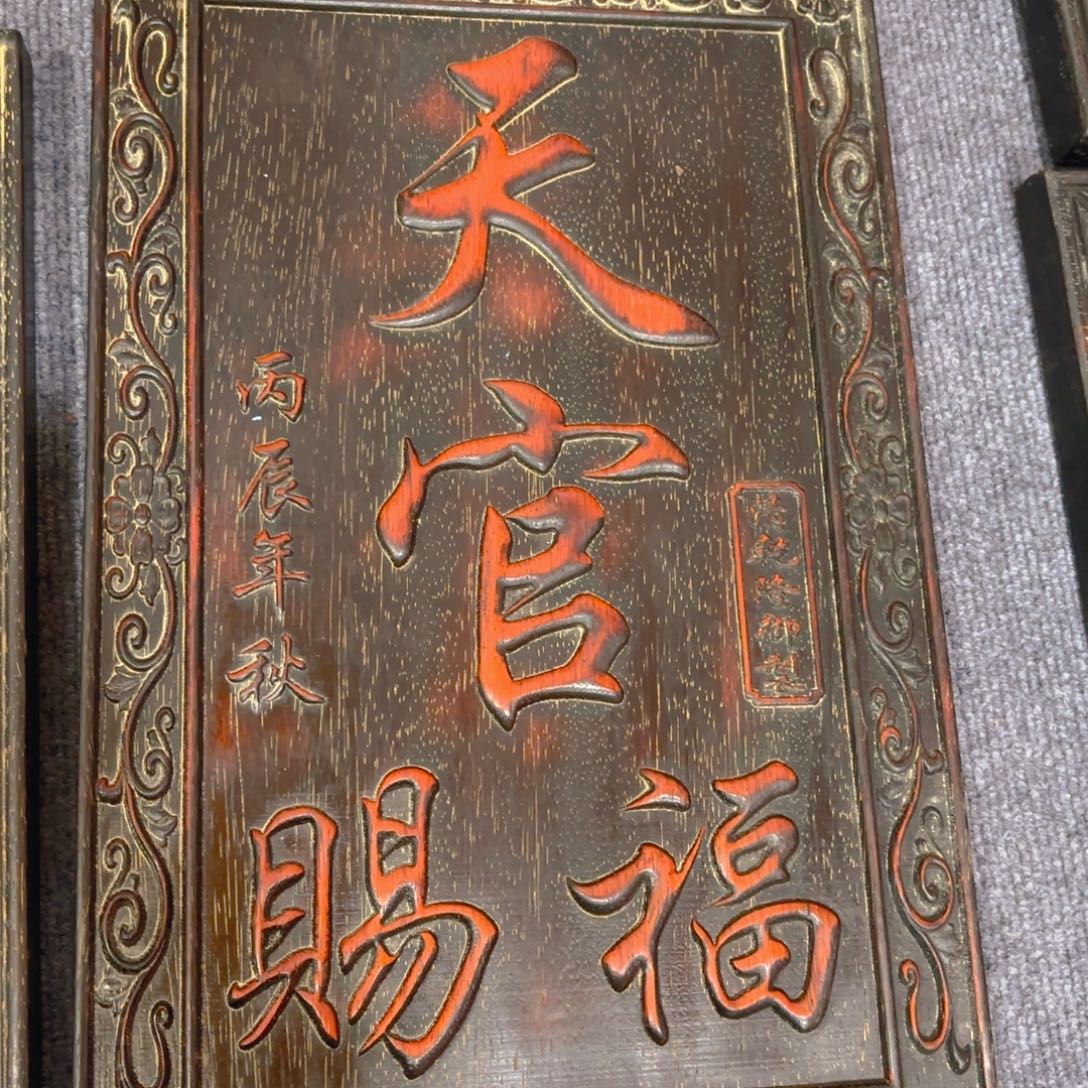 天官
賜福
丙辰年秋
乾隆御製